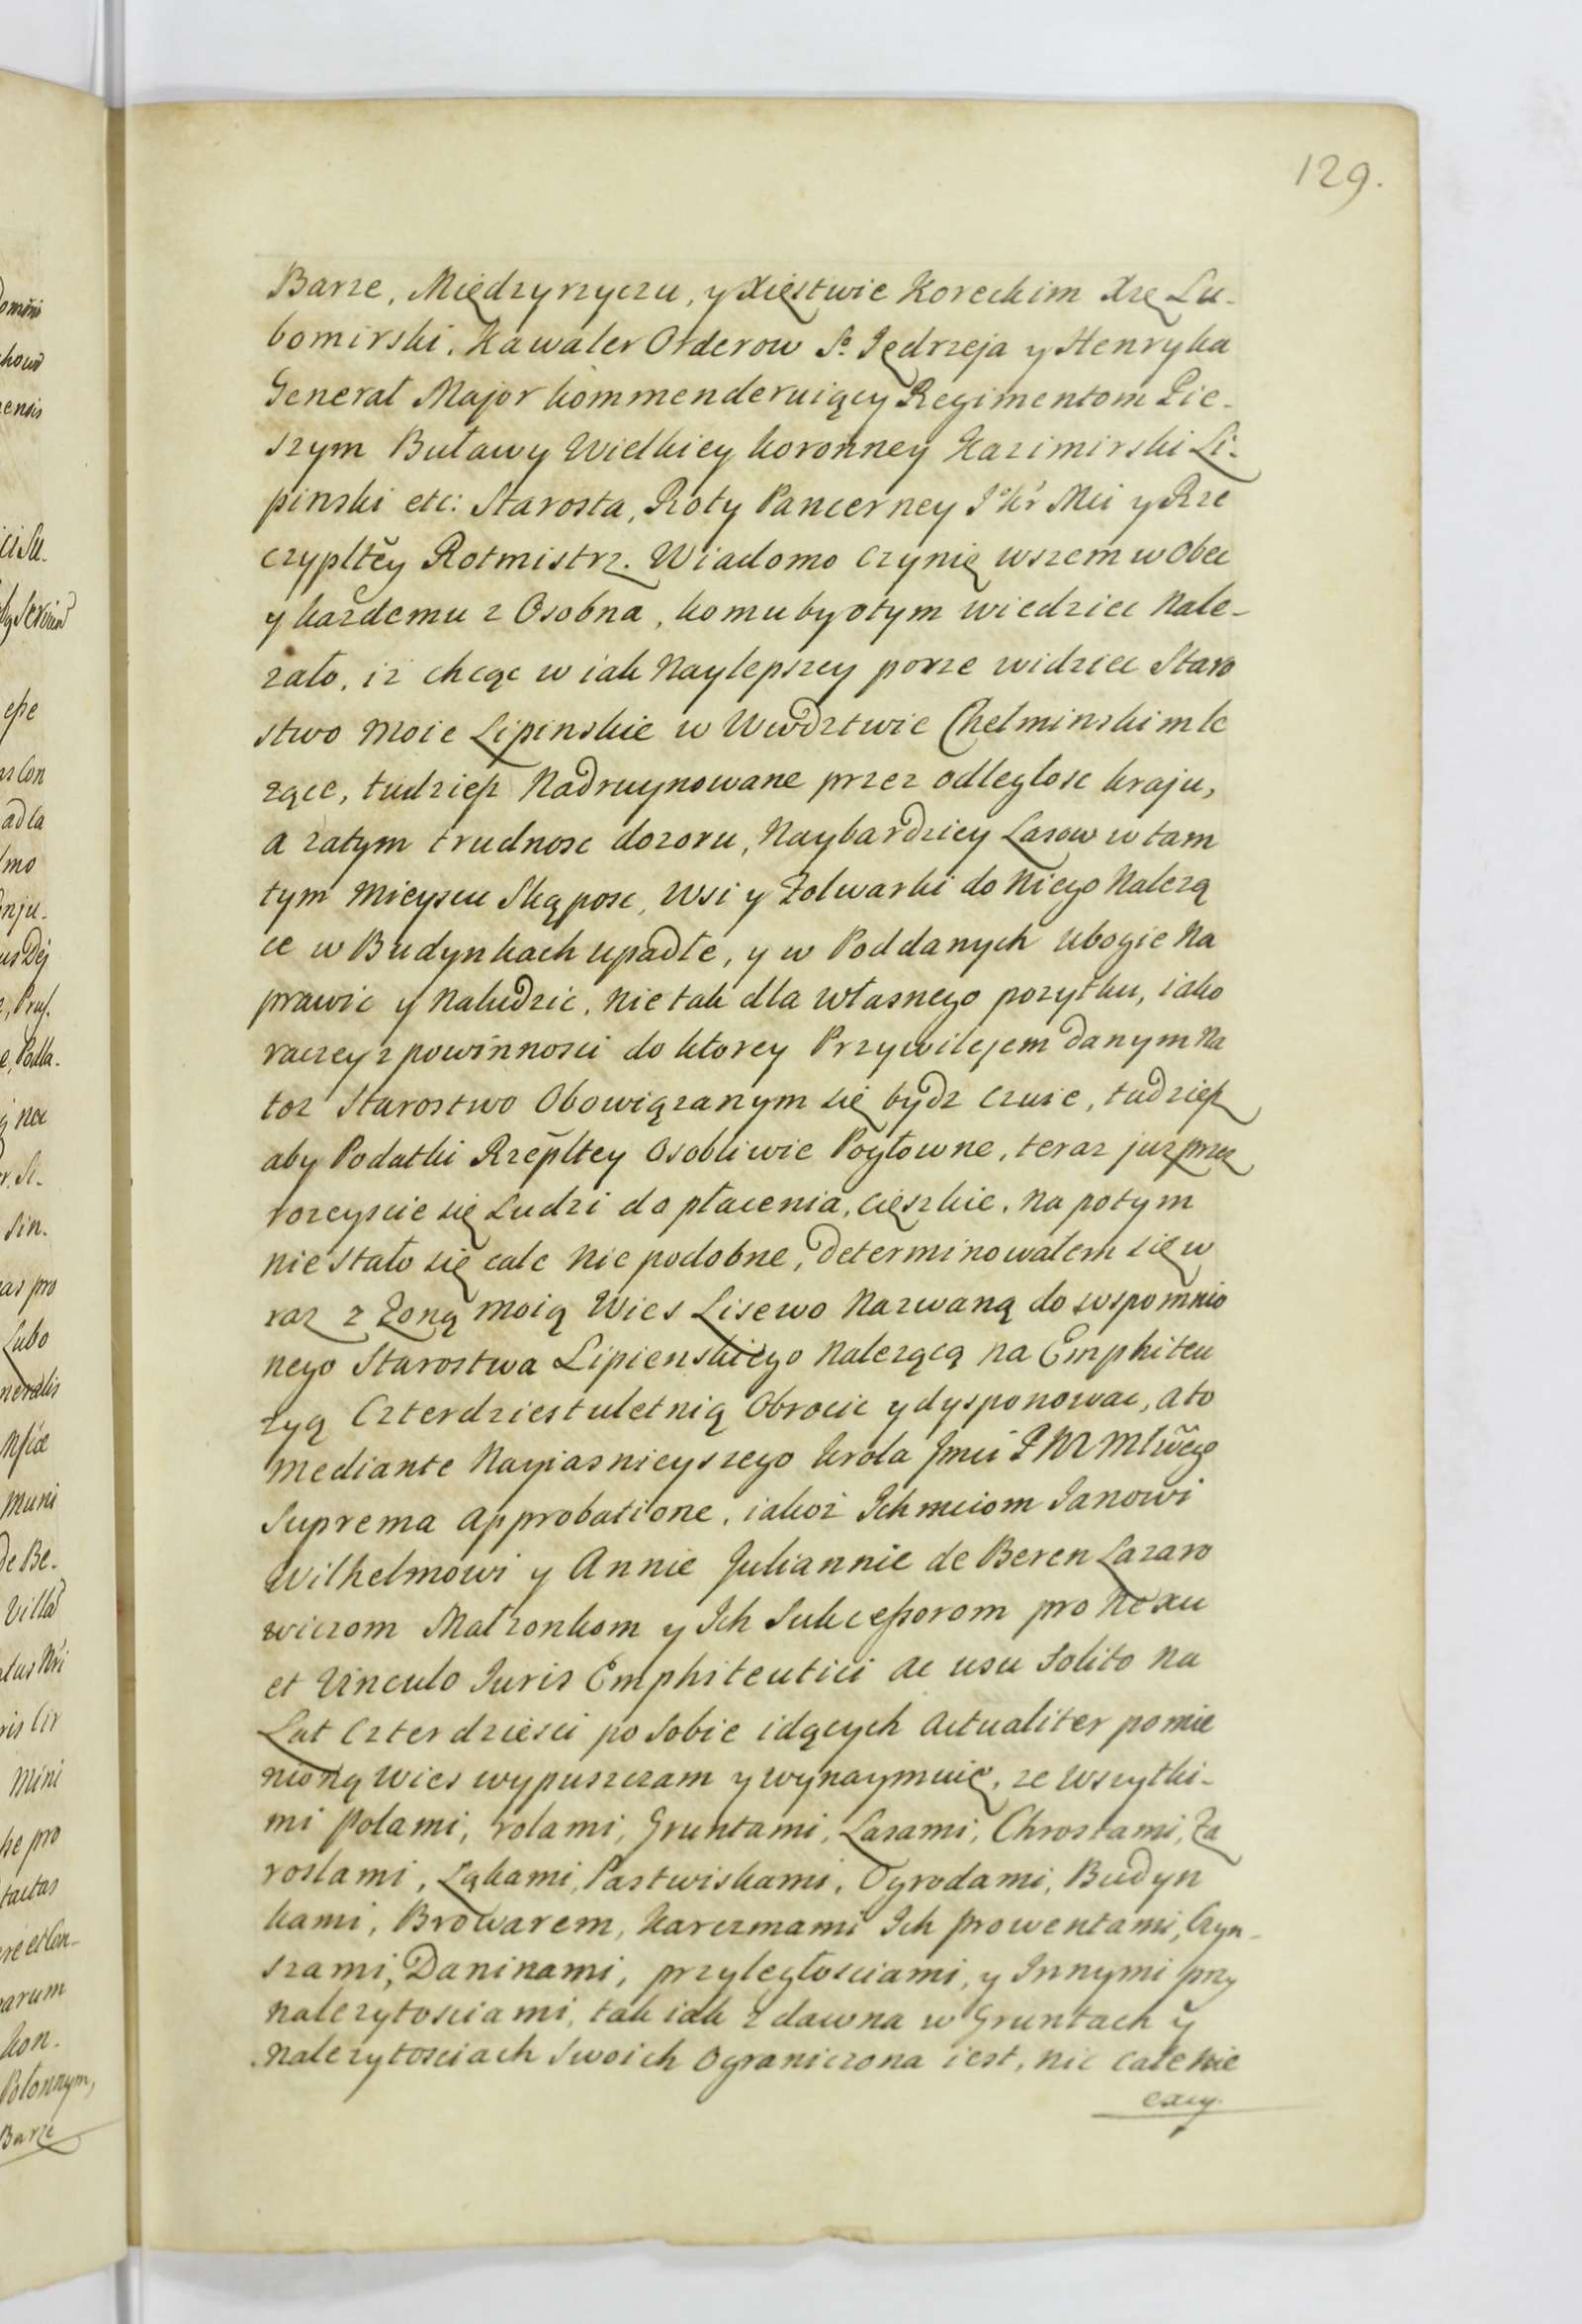 129.
Barze, Międzyrzyczu, y Xięstwie Koreckim Xżę Lu-
bomirski, Kawaler Orderow Sº Jędrzeja y Henryka
Generał Major kommenderuiący Regimentom Pie-
szym Buławy Wielkiey koronney Kazimirski Li-
pinski etc: Starosta, Roty Pancerney J Kr Mci y Rze
czyplttey Rotmistrz. Wiadomo czynię wszem w Obec
y kazdemu z Osobna, komu by o tym wiedziec Nale-
zało, iz chcąc w iak Naylepszey porze widziec Staro
stwo moie Lipinskie w Wwdztwie Chelminskim le
zące, tudziesz Nadruynowane przez odległosc kraju,
a zatym trudnosc dozoru, Naybardziey Lasow w tam
tym mieyscu Skąposc, Wsi y Folwarki do Niego Nalezą
ce w Budynkach upadłe, y w Poddanych Ubogie Na
prawic y Naludzic, nie tak dla własnego pozytku, iako
raczey z powinnosci do ktorey Przywilejem danym Na
toz Starostwo Obowiązanym się bydz czuie, tudziesz
aby Podatki Rzepltey Osobliwie Pogłowne, teraz juz przez
rozeyscie się Ludzi do płacenia, cięszkie, Na potym
nie stało się cale Nie podobne, determinowałem się w
raz z Zoną moią Wies Lisewo Nazwaną do wspomnio
nego Starostwa Lipienskiego Nalezącą na Emphiteu
zyą Czterdziestuletnią Obrocic y dysponowac, a to
mediante Nayiasnieyszego krola Jmci P N Mlwego
Suprema Approbatione, iakoz Ichmciom Janowi
Wilhelmowi y Annie Juliannie de Beren Lazaro
wiczom Małzonkom y Ich Sukcessorom pro Nexu
et Vinculo Juris Emphiteutici ac usu Solito na
Lat Czterdziesci po Sobie idących Actualiter pomie
nioną Wies wypuszczam y wynaymuię, ze wszytki-
mi Polami, rolami, Gruntami, Lasami, Chrostami, Za
roslami, Ląkami, Pastwiskami, Ogrodami, Budyn
kami, Browarem, Karczmami Ich prowentami, Czyn-
szami, Daninami, przyległosciami, y Innymi przy
nalezytosciami, tak iak z dawna w Gruntach y
Nalezytosciach Swoich Ograniczona iest, nic cale nie